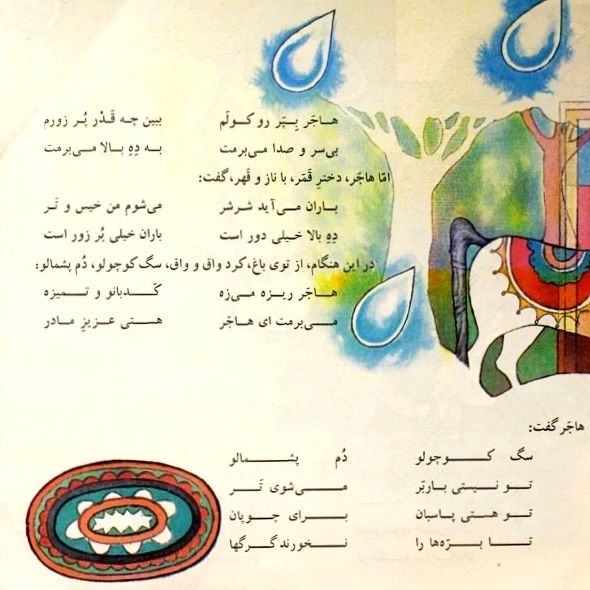 هاجَر بِپَر رو کولَم ببین چه قَدْر پُر زورم
بی‌سر و صدا می‌برمت به دِهِ بالا می‌برمت
امّا هاجَر، دخترِ قَمَر، با ناز و قَهر، گفت:
باران می‌آید شرشر می‌شوم من خیس و تَر
دِهِ بالا خیلی دور است باران خیلی پُر زور است
در این هنگام، از توی باغ، کرد واق و واق، سگ کوچولو، دُم پشمالو:
هاجَر ریزه میزه کَدبانو و تمیزه
می‌برمت ای هاجَر هستی عزیزِ مادر
هاجَر گفت:
سگ کوچولو دُم پشمالو
تو نیستی باربَر می‌شوی تَر
تو هستی پاسبان برای چوپان
تا برّه‌ها را نخورند گرگها